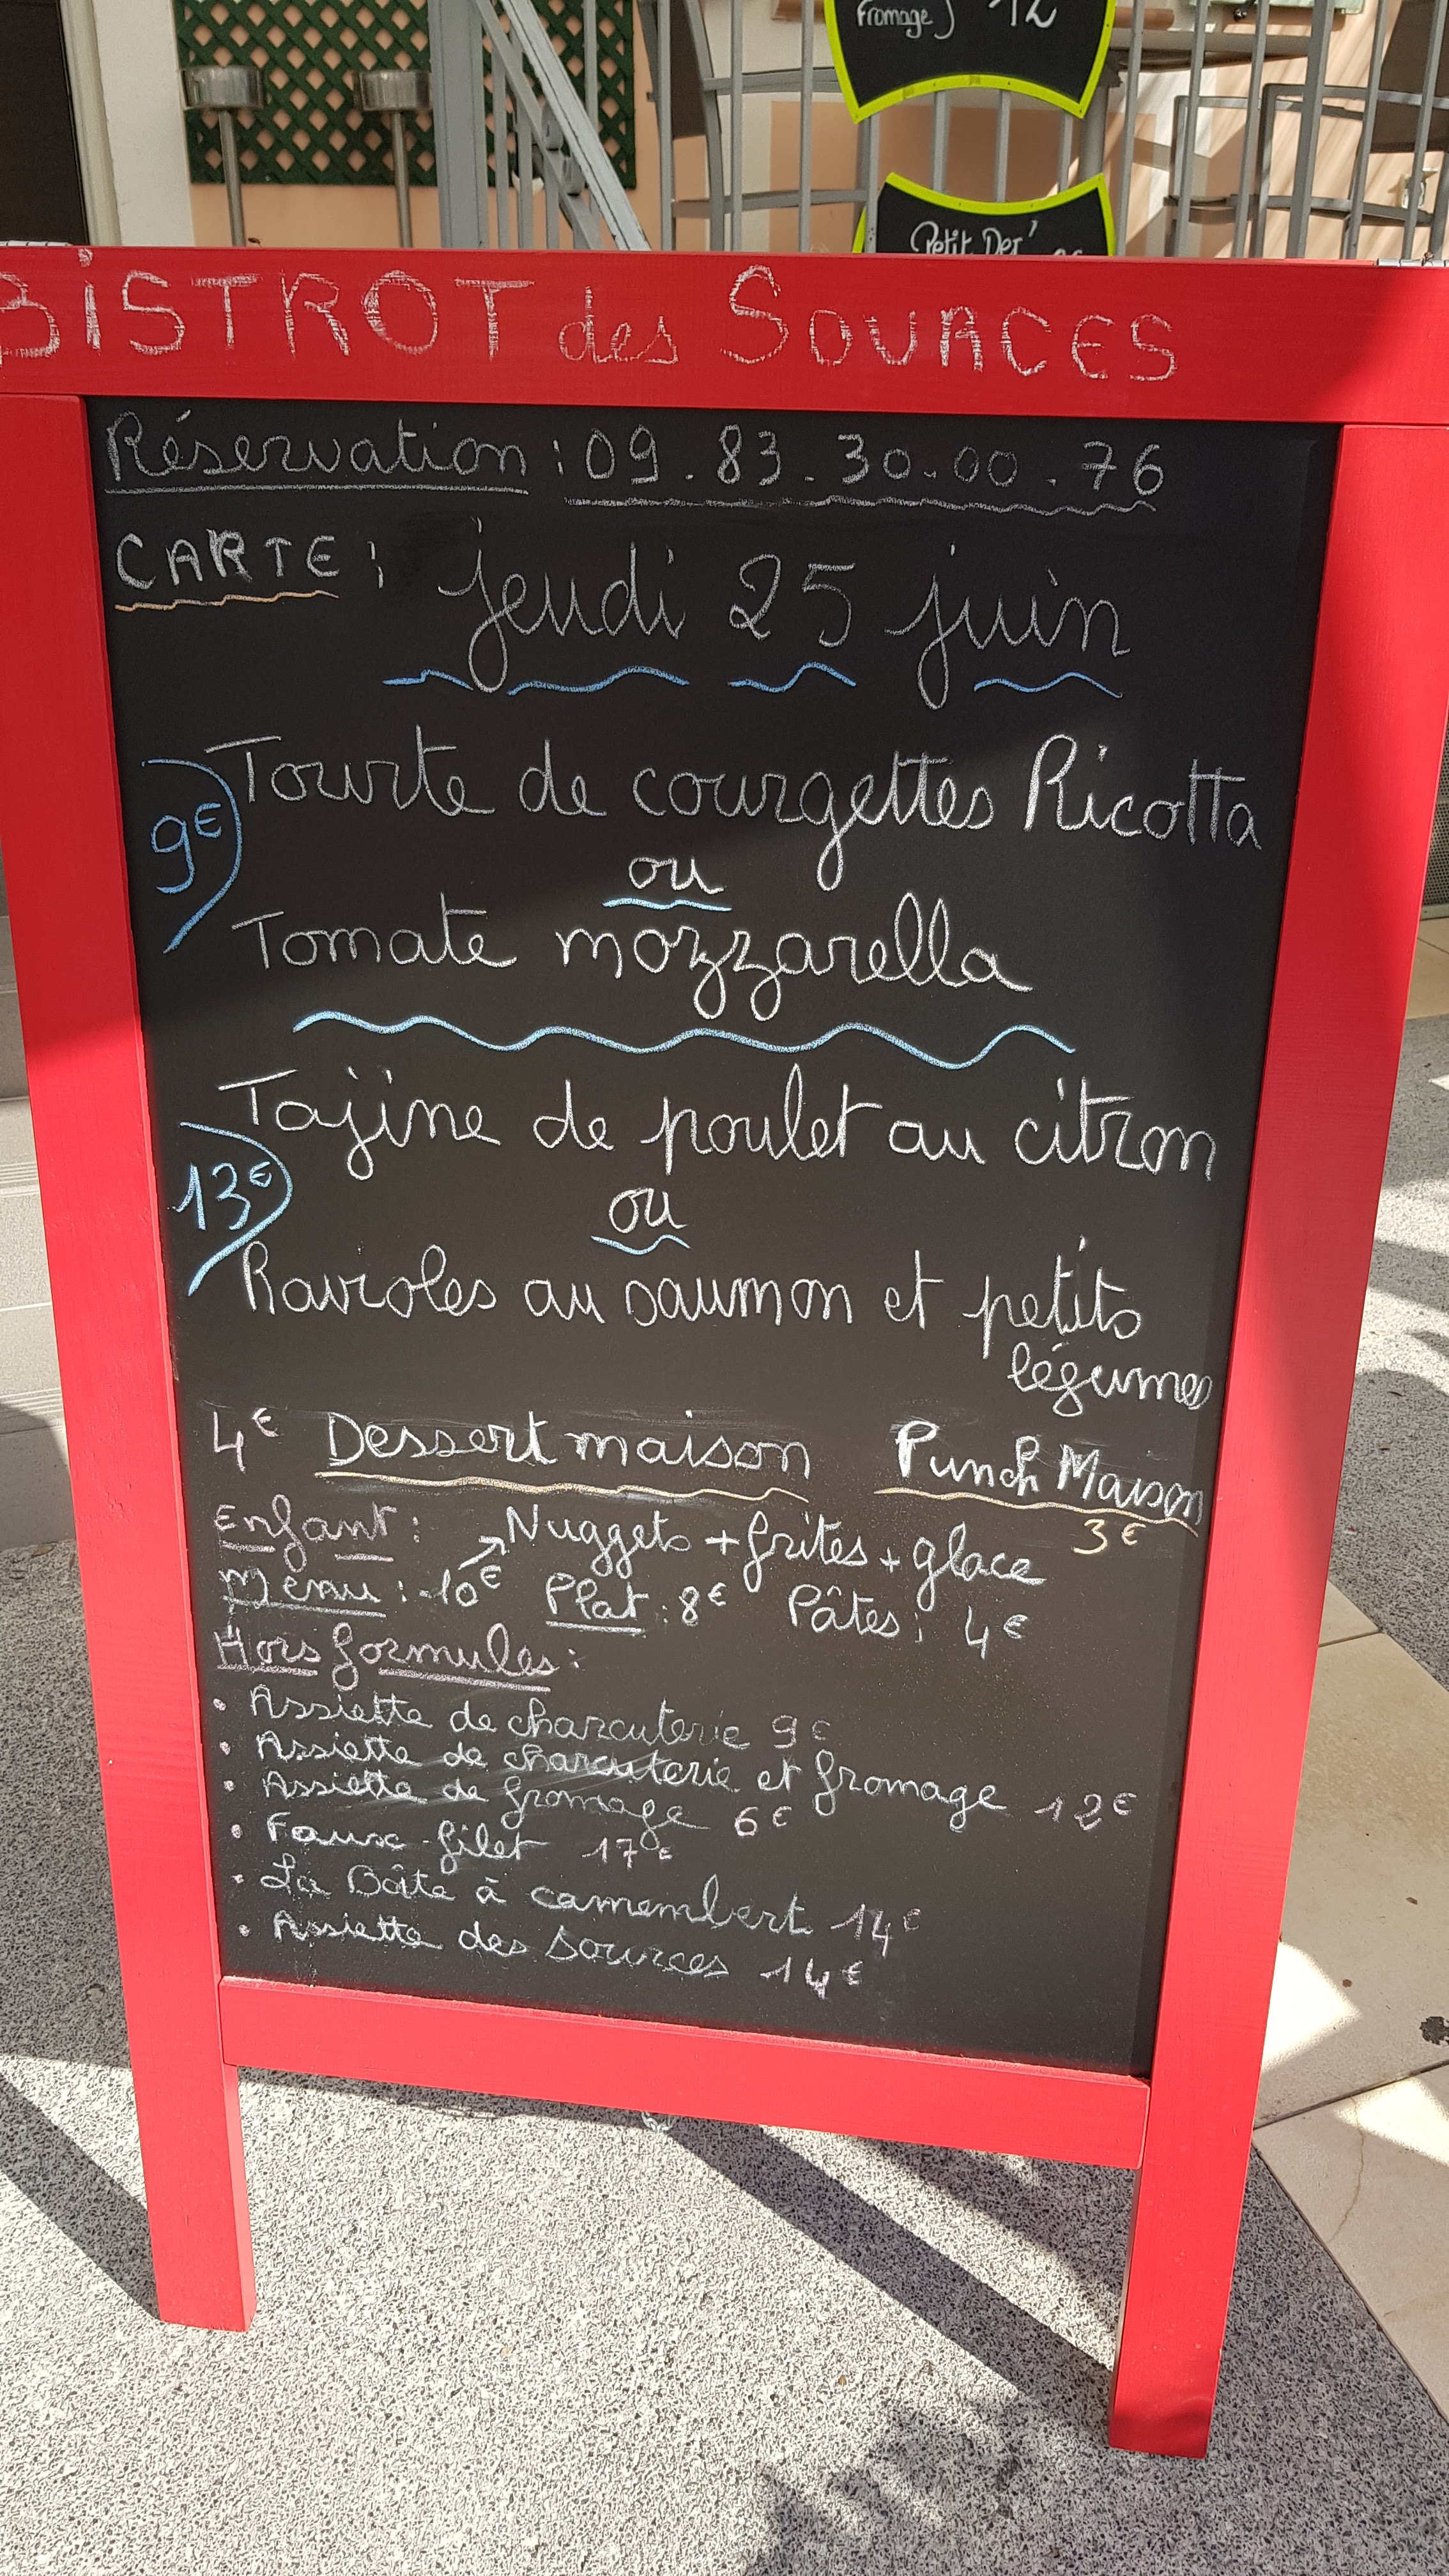 Fromage) 12
Petit Dej'
BiSTROT des SOURCES
Réservation : 09.83.30.00.76
CARTE : jeudi 25 juin
Tourte de courgettes Ricotta
9€
ou
Tomate mozzarella
Tajine de poulet au citron
13€
ou
Ravioles au saumon et petits
légumes
4€ Dessert maison Punch Maison
3€
Enfant : Nuggets + frites + glace
Menu : 10€ Plat : 8€ Pâtes : 4€
Hors formules :
• Assiette de charcuterie 9€
• Assiette de charcuterie et fromage 12€
• Assiette de fromage 6€
• Faux-filet 17€
• La Boîte à camembert 14€
• Assiette des Sources 14€